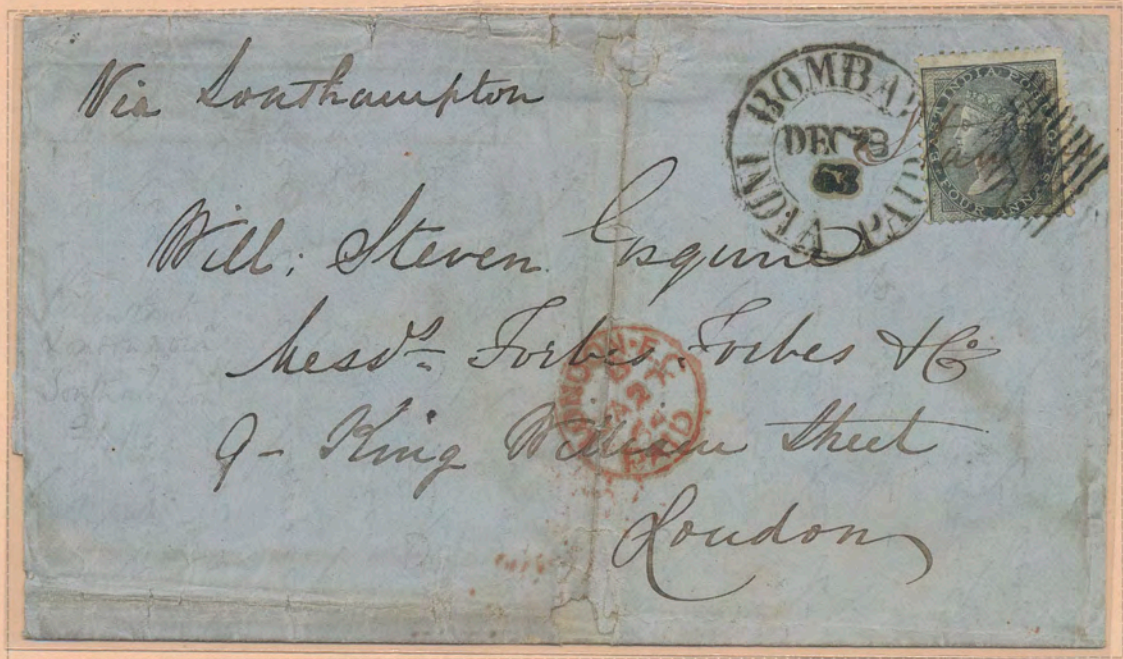 Via Southampton
BOMBAY
DEC
63
INDIA PAID
EAST INDIA POSTAGE
FOUR ANNAS
Will: Steven Esquire
Messrs Forbes, Forbes & Co
9 - King William Street
London
LONDON - E.C
PAID